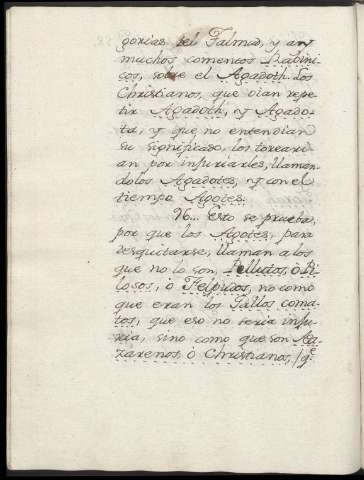 gorias del Talmud, y ay
muchos comentos Rabini-
cos, sobre el Agadoth. Los
Christianos, que oian repe-
tir Agadoth, y Agado-
ta, y que no entendian
su significado, los
an por injuriarles, llaman-
dolos Agadotes, y con el
tiempo Agotes.
Esto se prueba,
por que los Agotes, para
desquitarse, llaman a los
que no lo son, Pelludos, ò Pi-
losos, ò Felpudos, no como
que eran los Gallos coma-
tos, que eso no seria inju-
ria, sino como que son Na-
zarenos, ò Christianos, qe